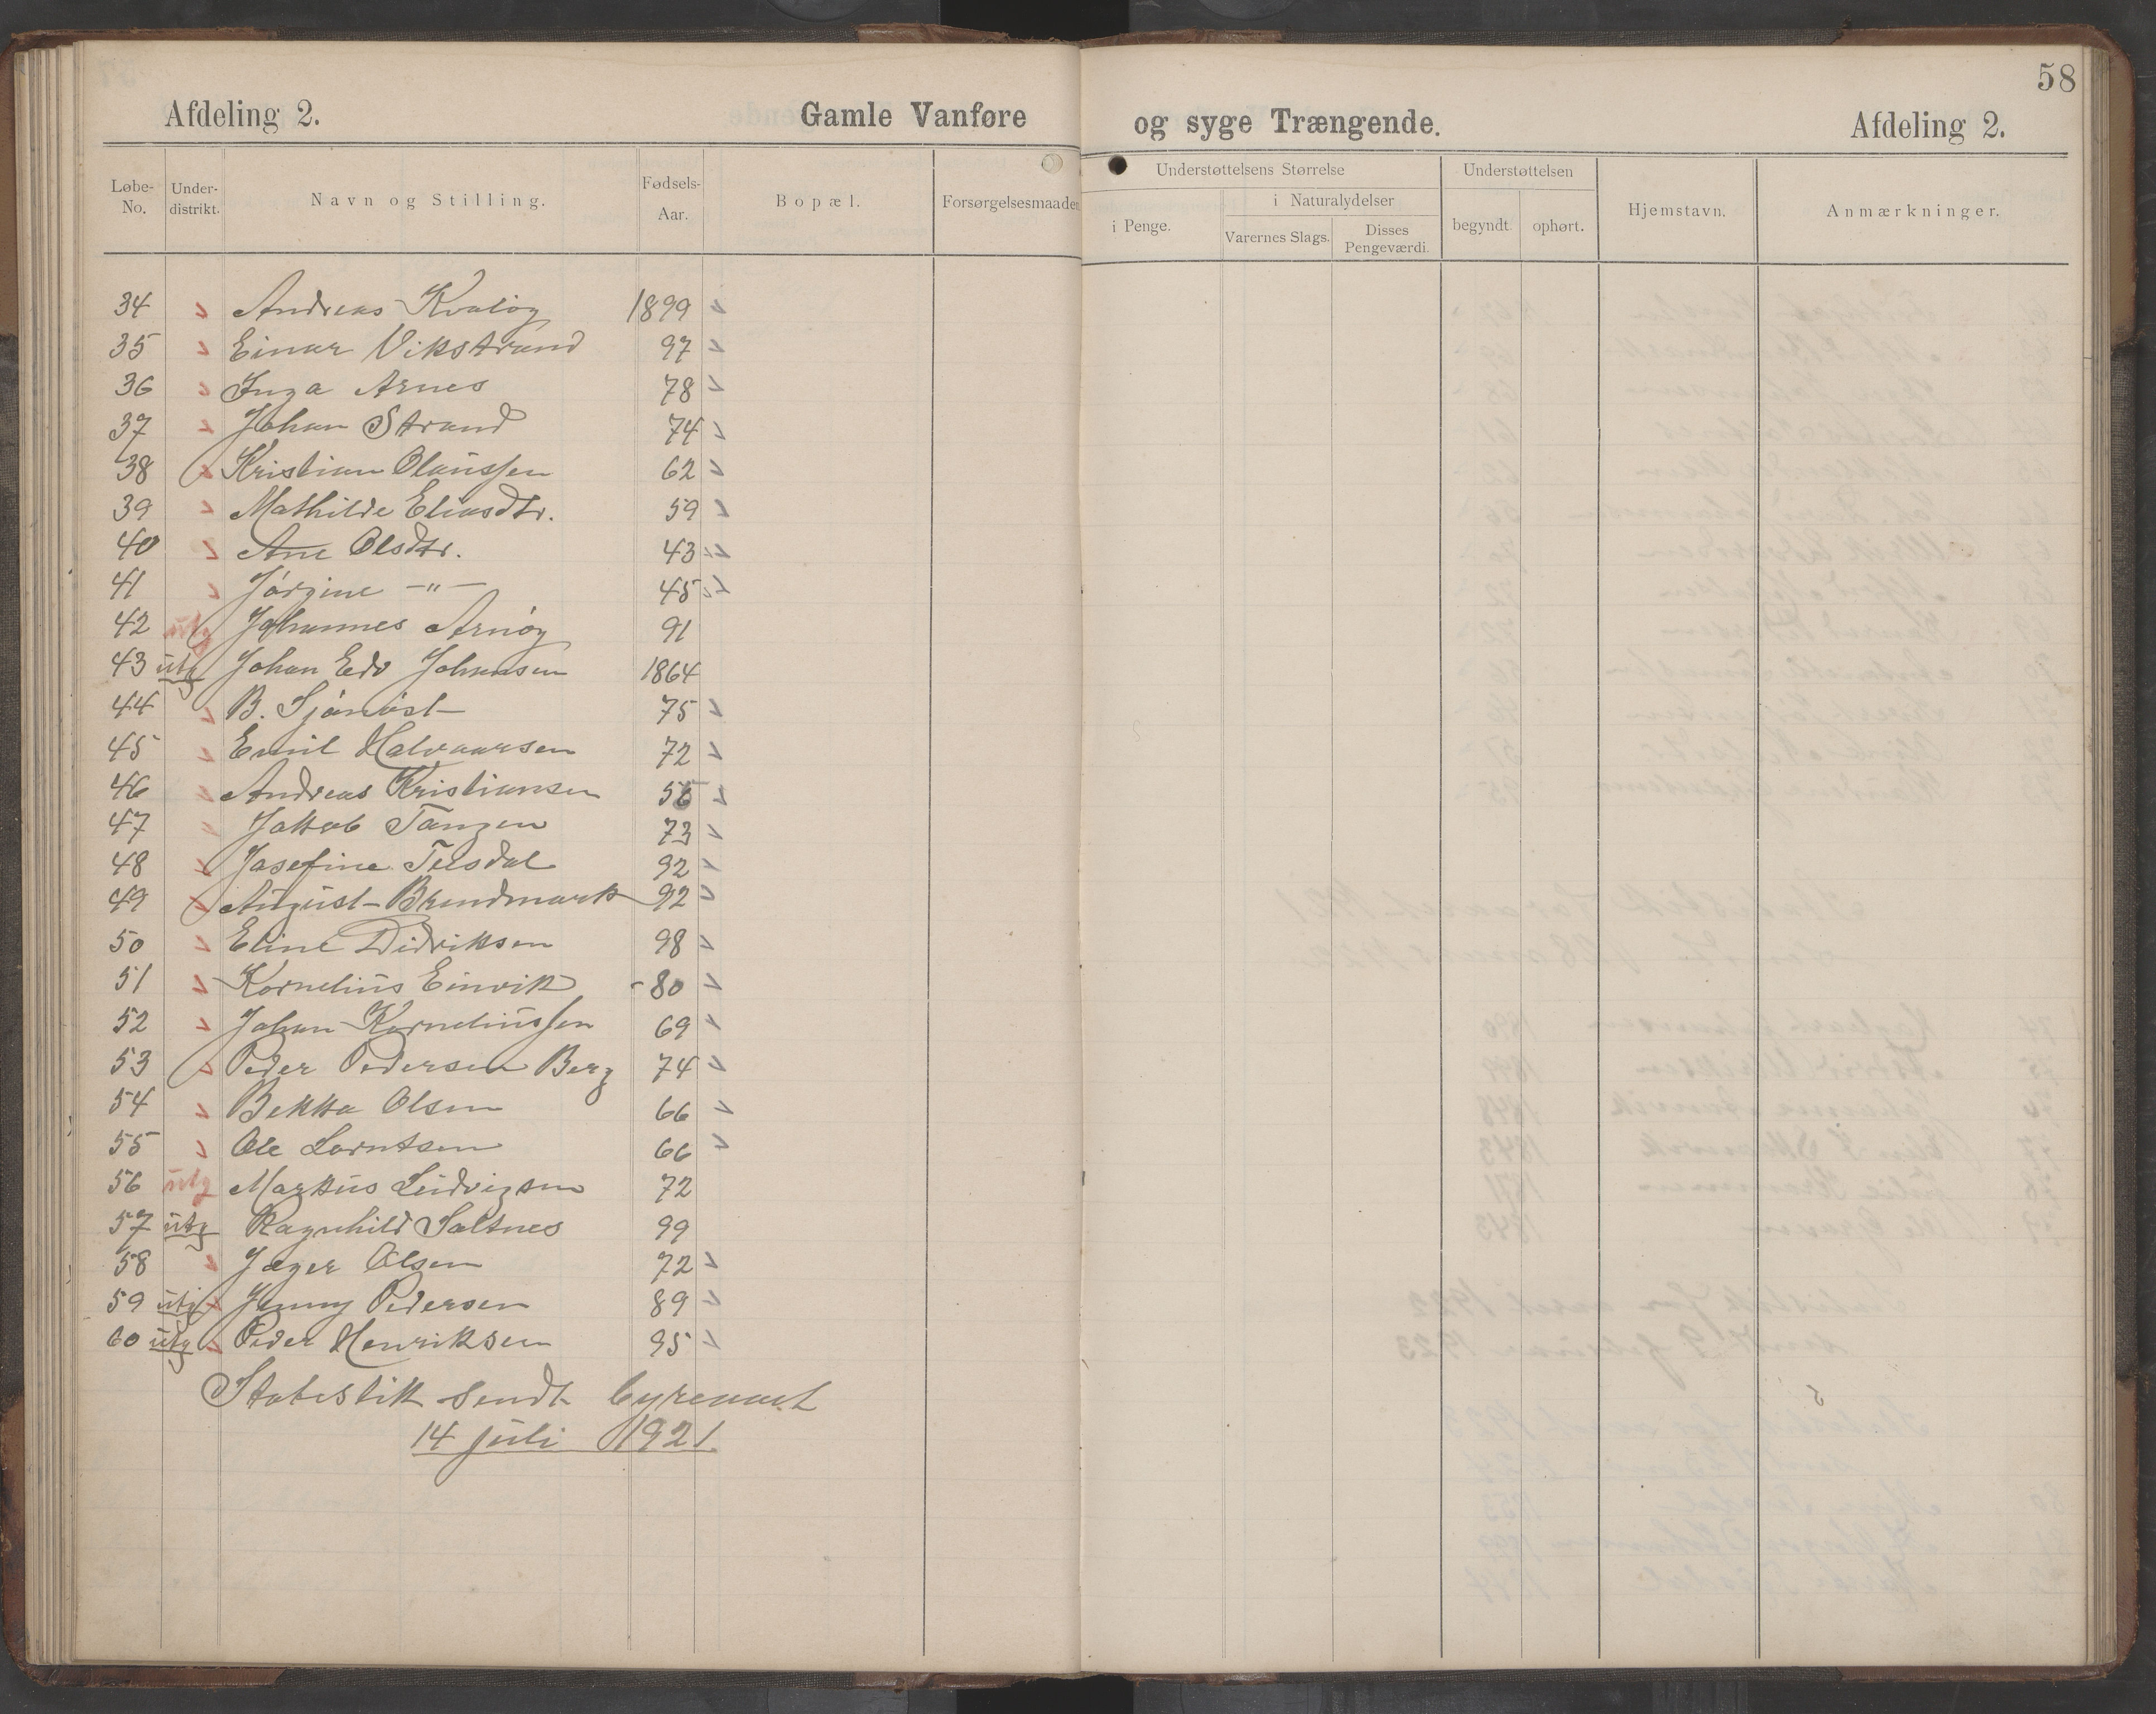 58
Afdeling 2. Gamle Vanføre og syge Trængende. Afdeling 2.
Løbe-No. Under-distrikt. Navn og Stilling. Fødsels-Aar. Bopæl. Forsørgelsesmaaden Understøttelsens Størrelse i Penge. i Naturalydelser Varernes Slags. Disses Pengeværdi. Understøttelsen begyndt. ophørt. Hjemstavn. Anmærkninger.
34 Andreas Kvaløy 1899
35 Einar Vikstrand 97
36 Inga Arnes 78
37 Johan Strand 74
38 Kristian Olaussen 62
39 Mathilde Eliasdtr. 59
40 Ane Olsdtr. 43
41 Jørgine -"- 45
42 utg Johannes Arnøy 91
43 utg Johan Edv Johansen 1864
44 B. Sjøqvist 75
45 Emil Halvaarsen 72
46 Andreas Kristiansen
47 Jakob Tangen 73
48 Josefine Teisdal 92
49 August Brendmark 92
50 Eline Didriksen 98
51 Kornelius Einvik - 80
52 Johan Korneliussen 69
53 Peder Pedersen Berg 74
54 Bekka Olsen 66
55 Ole Lorntsen 66
56 utg Markus Ludvigsen 72
57 utg Ragnhild Saltnes 99
58 Jæger Olsen 72
59 utg Jenny Pedersen 89
60 utg Peder Henriksen 95
Statestik sendt byraaet
14 juli 1921